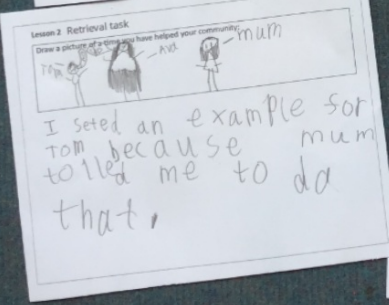 Lesson 2 Retrieval task
Draw a picture of a time you have helped your community:
Tom
Ava
mum
I seted an example for
Tom because mum
tolled me to da
that.